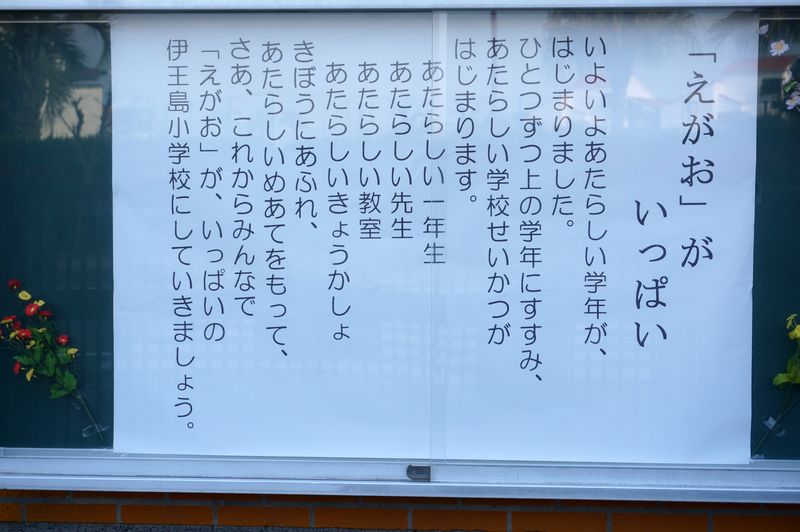 「えがお」が
いっぱい
いよいよあたらしい学年が、
はじまりました。
ひとつずつ上の学年にすすみ、
あたらしい学校せいかつが
はじまります。
あたらしい一年生
あたらしい先生
あたらしい教室
あたらしいきょうかしょ
きぼうにあふれ、
あたらしいめあてをもって、
さあ、これからみんなで
「えがお」が、いっぱいの
伊王島小学校にしていきましょう。